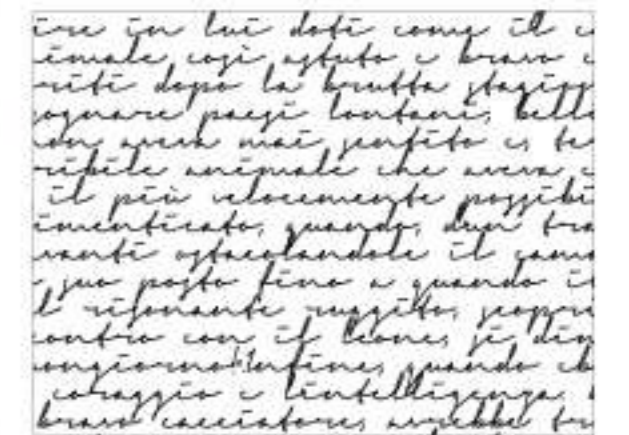 ire in lui doti come il c
imale così astuto e bravo c
riti dopo la brutta stagion
ognare paesi lontani, belle
on aveva mai sentito e, te
ribile animale che aveva c
il più velocemente possibi
imenticato, quando, d'un tra
vanti ostacolandole il camm
suo posto fino a quando il
l risonante ruggito, scopri
contro con il leone, si din
ongiorno! Infine, quando ch
coraggio e l'intelligenza,
bravo cacciatore, avrebbe tr